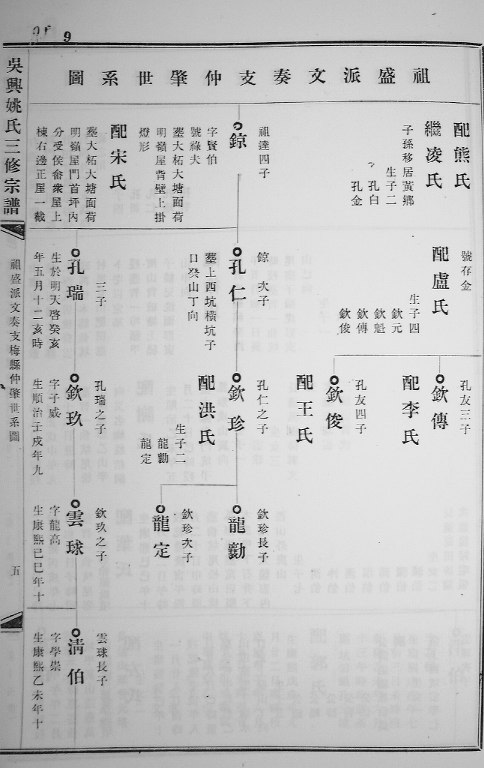 9
祖盛派文奏支仲肇世系圖
吳興姚氏三修宗譜
祖盛派文奏支梅縣仲肇世系圖
五
配熊氏
繼凌氏
子孫移居黃鄉
生子二
孔白
孔金
祖達四子
鍄
字賢伯
號祿夫
塟大柘大塘面荷
明嶺屋背壁上掛
燈形
配宋氏
塟大柘大塘面荷
明嶺屋門首坪內
分受侯畬衆屋上
棟右邊正屋一截
號存金
配盧氏
生子四
欽元
欽魁
欽傳
欽俊
鍄次子
孔仁
塟上西坑橫坑子
口癸山丁向
三子
孔瑞
生於明天啓癸亥
年五月十二亥時
孔友三子
欽傳
配李氏
孔友四子
欽俊
配王氏
孔仁之子
欽珍
配洪氏
生子二
龍勷
龍定
孔瑞之子
欽玖
字子威
生順治壬戌年九
欽珍長子
龍勷
欽珍次子
龍定
欽玖之子
雲球
字龍高
生康熙己巳年十
雲球長子
清伯
字學崇
生康熙乙未年十